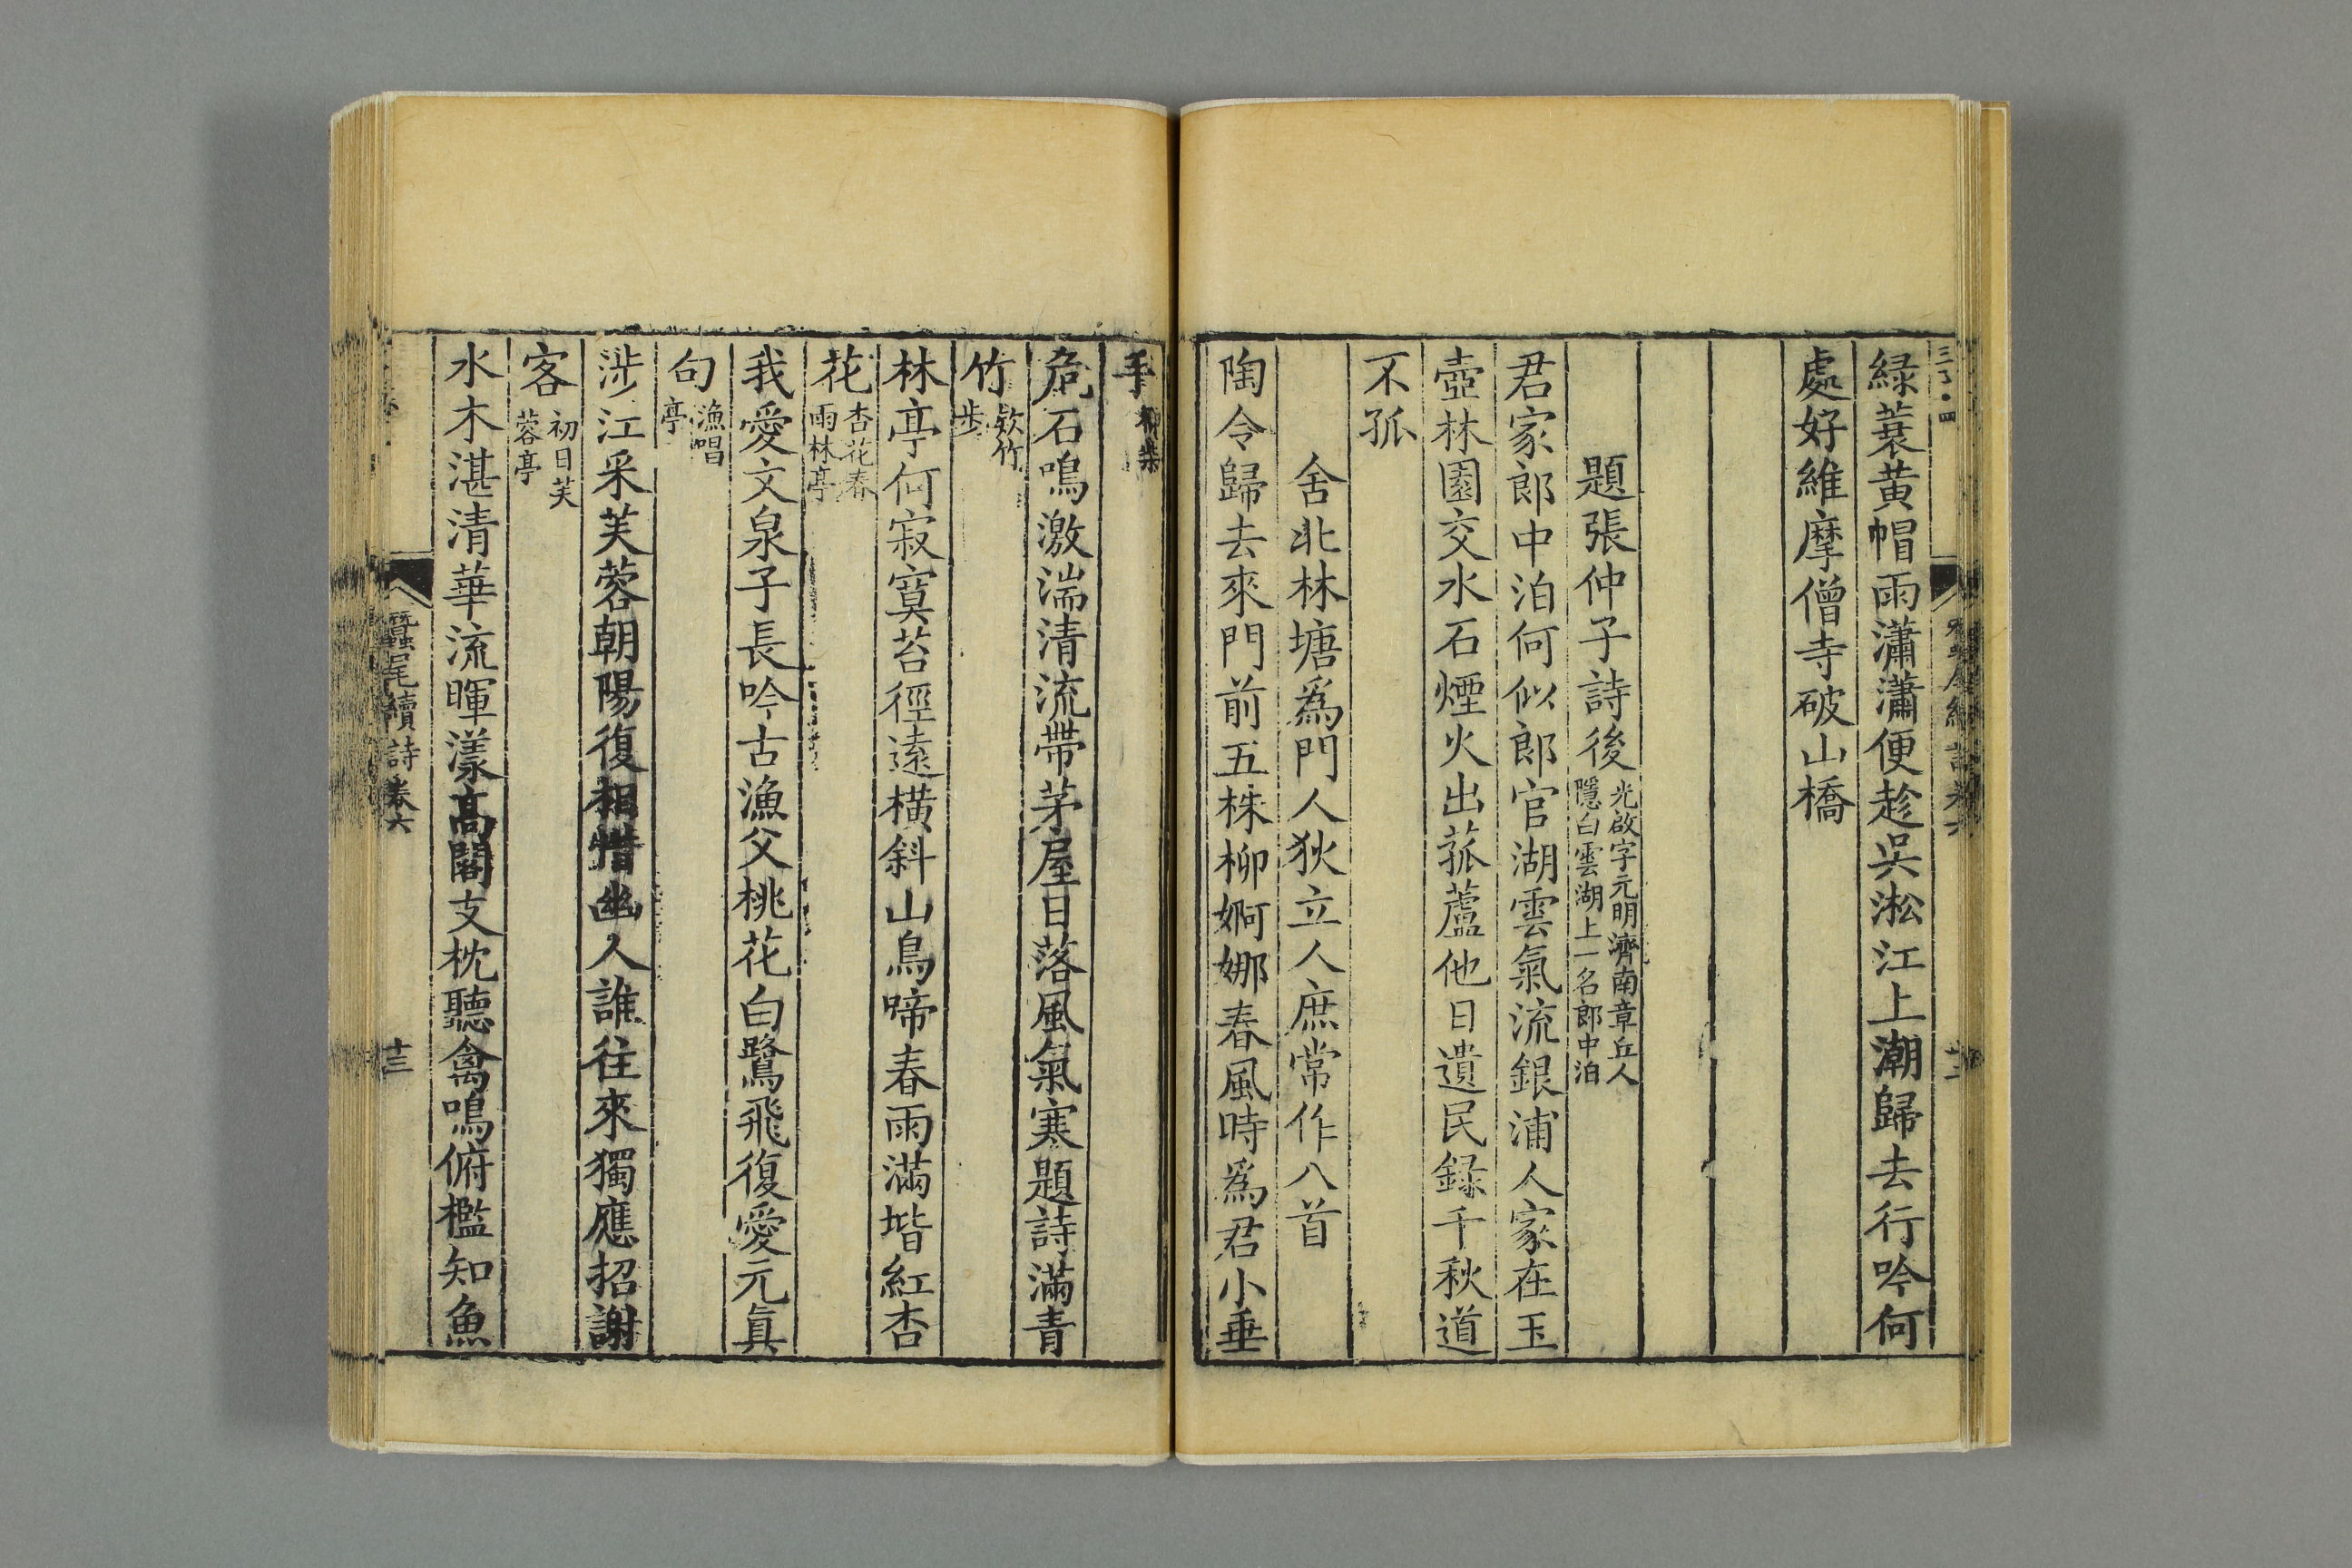 綠蓑黄帽雨瀟瀟便趁吳淞江上潮歸去行吟何
處好維摩僧寺破山橋
題張仲子詩後 光啟字元明濟南章丘人
隱白雲湖上一名郎中泊
君家郎中泊何似郎官湖雲氣流銀浦人家在玉
壺林園交水石煙火出菰蘆他日遺民録千秋道
不孤
舍北林塘爲門人狄立人庶常作八首
陶令歸去來門前五株柳婀娜春風時爲君小垂
手
危石鳴激湍清流帶茅屋日落風氣寒題詩滿青
竹 欵竹
步
林亭何寂寞苔徑遠橫斜山鳥啼春雨滿堦紅杏
花 杏花春
雨林亭
我愛文泉子長吟古漁父桃花白鷺飛復愛元眞
句 漁唱
亭
涉江采芙蓉朝陽復相惜幽人誰往來獨應招謝
客 初日芙
蓉亭
水木湛清華流暉漾高閣支枕聽禽鳴俯檻知魚
蠶尾續詩卷六
十三